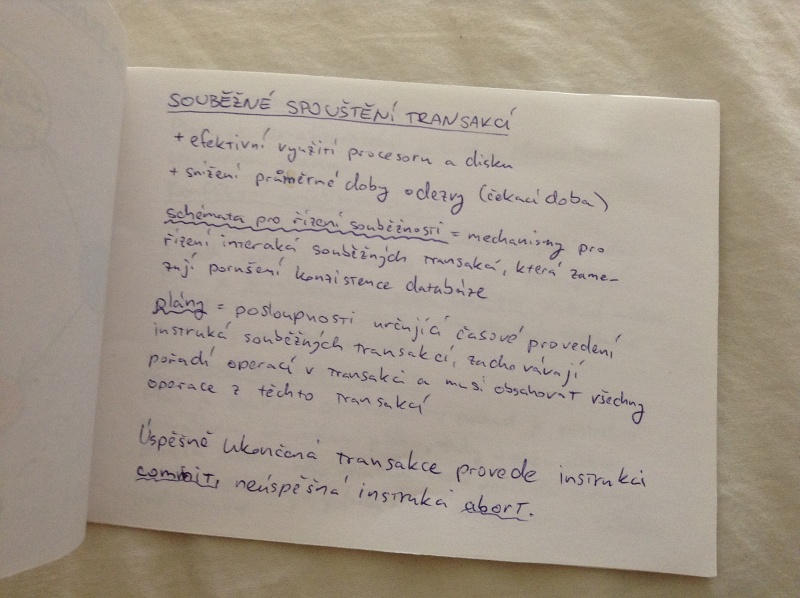 SOUBĚŽNÉ SPOUŠTĚNÍ TRANSAKCÍ
+ efektivní využití procesoru a disku
+ snížení průměrné doby odezvy (čekací doba)
schémata pro řízení souběžnosti = mechanismy pro
řízení interakcí souběžných transakcí, která zame-
zují porušení konzistence databáze
plány = posloupnosti určující časové provedení
instrukcí souběžných transakcí, zachovávají
pořadí operací v transakci a musí obsahovat všechny
operace z těchto transakcí
Úspěšně ukončená transakce provede instrukci
commit, neúspěšná instrukci abort.